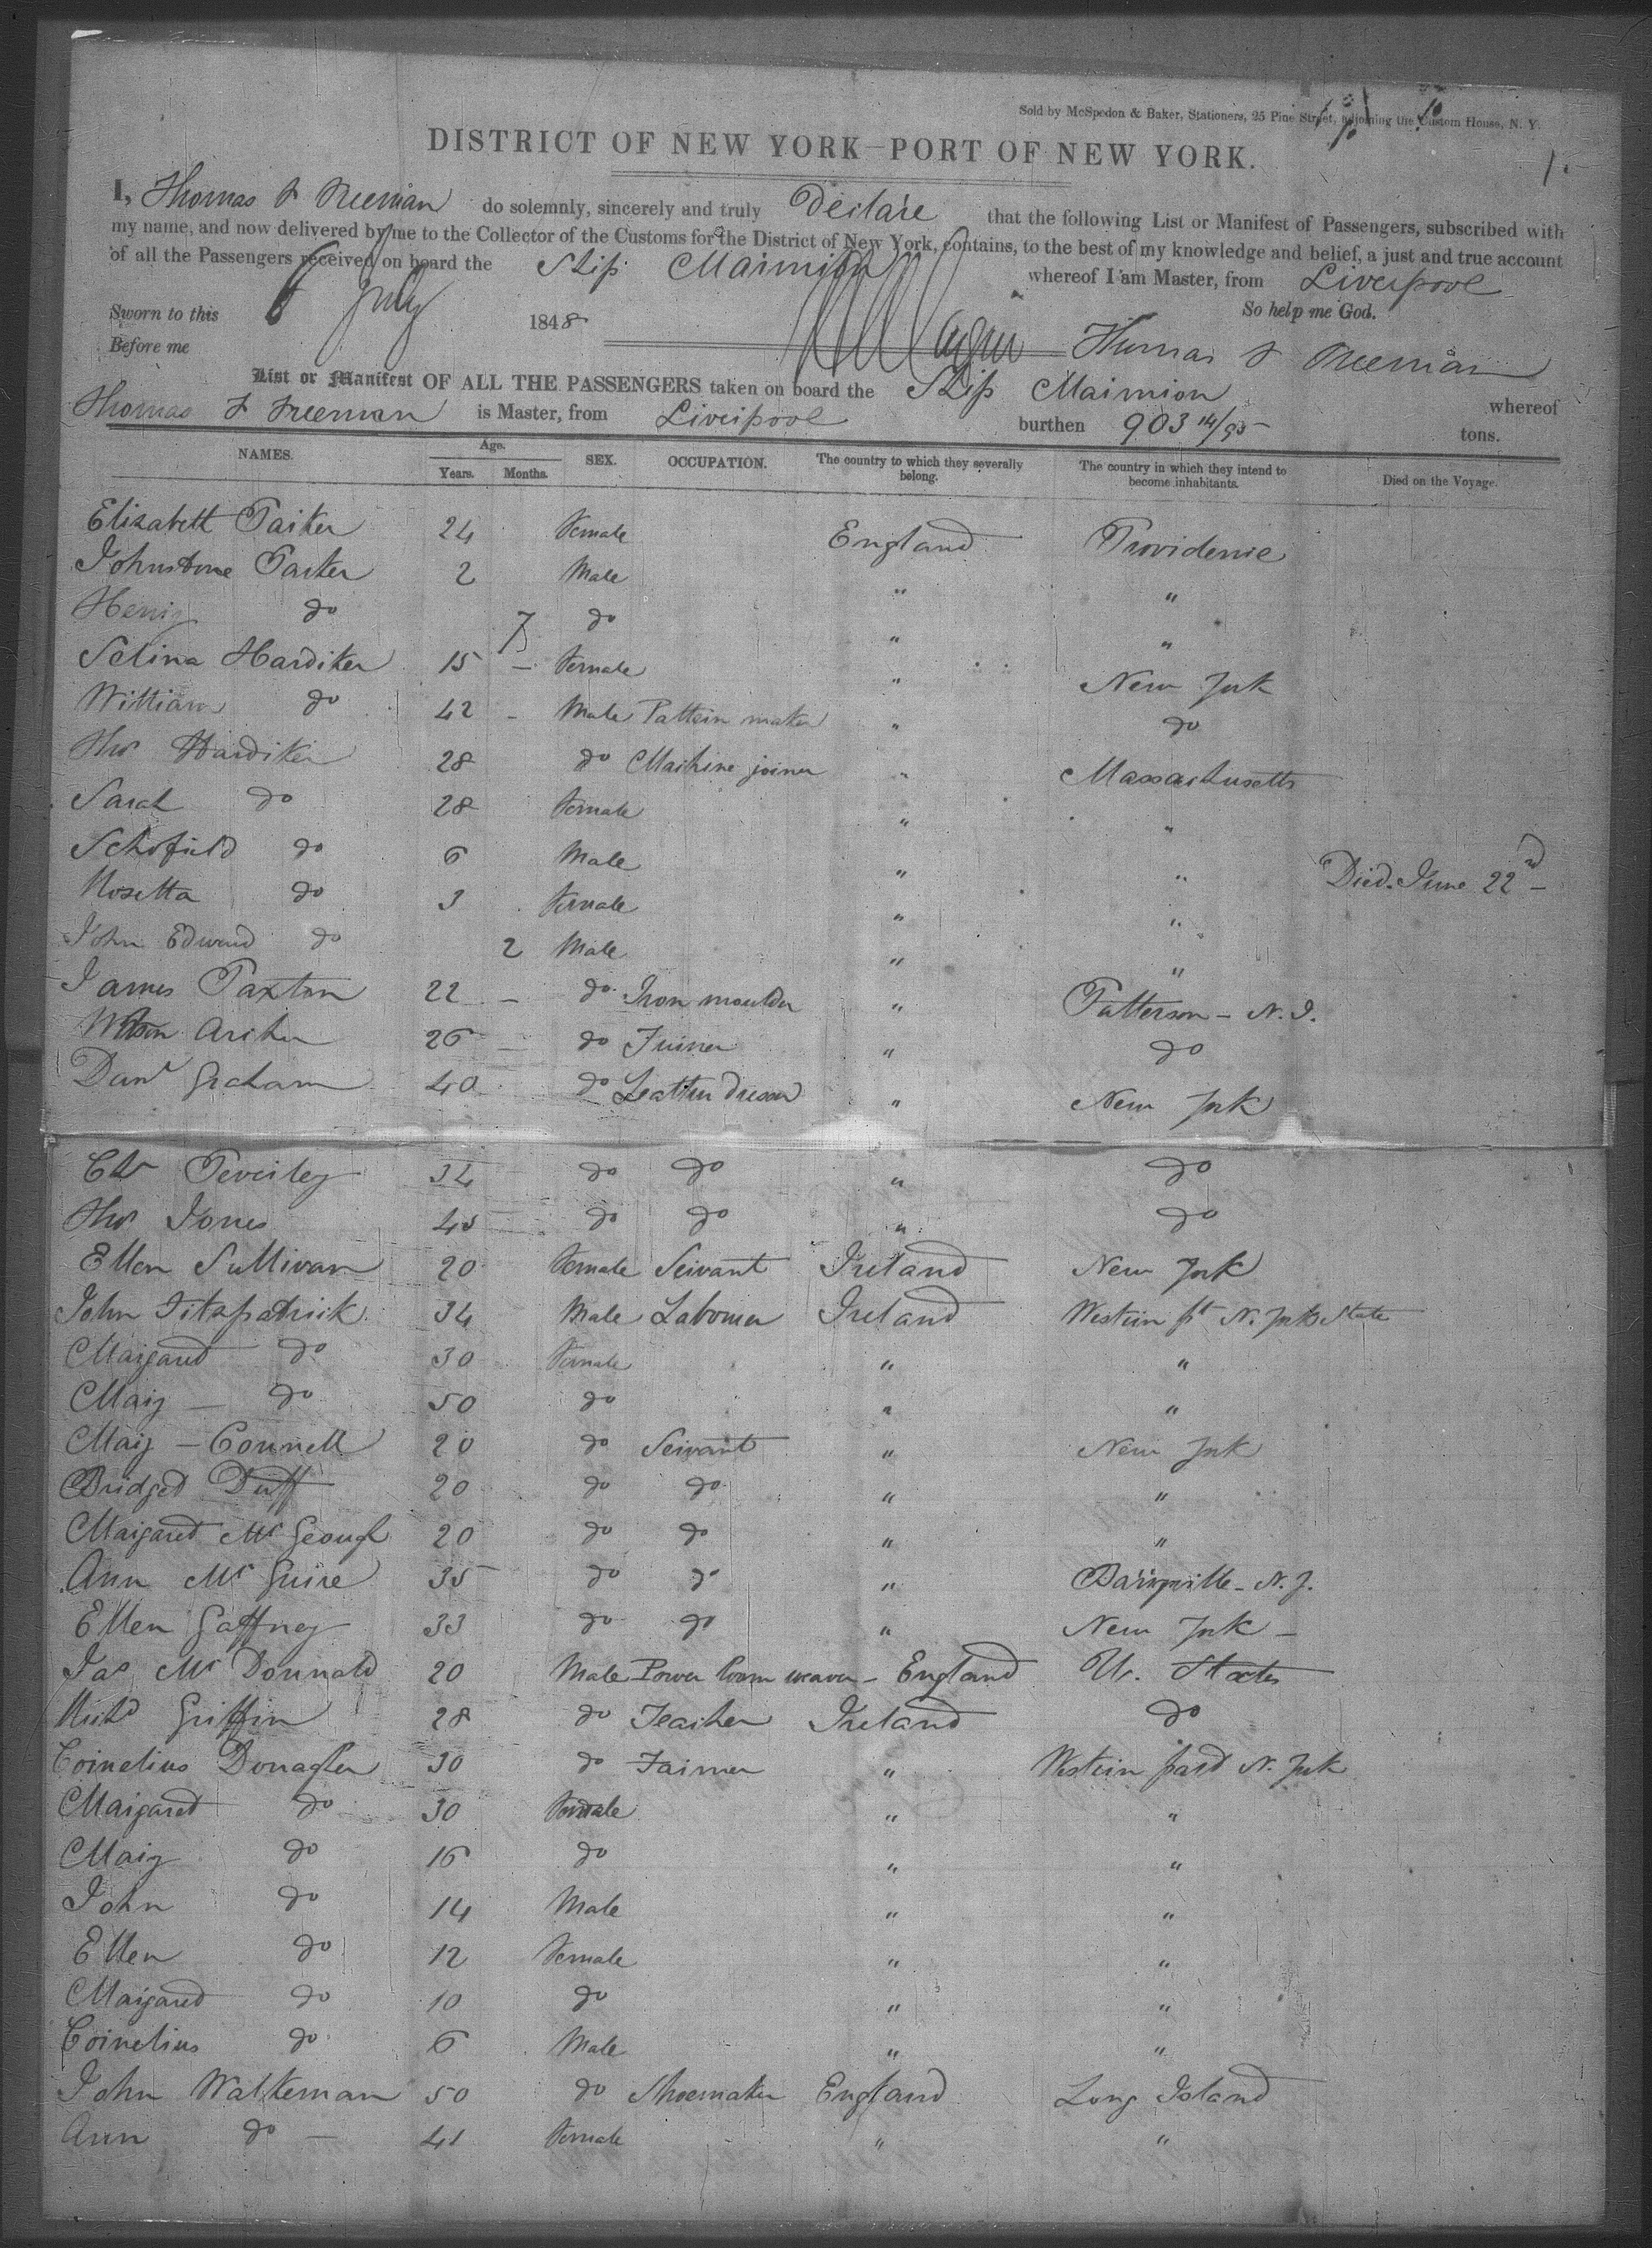 Sold by McSpedon & Baker, Stationers, 25 Pine Street, adjoining the Custom House, N. Y.
DISTRICT OF NEW YORK—PORT OF NEW YORK.
1.
I, Thomas F Freeman do solemnly, sincerely and truly Declare that the following List or Manifest of Passengers, subscribed with
my name, and now delivered by me to the Collector of the Customs for the District of New York, contains, to the best of my knowledge and belief, a just and true account
of all the Passengers received on board the Ship Marmion whereof I am Master, from Liverpool
So help me God.
Sworn to this 6 July 1848
Before me Thomas F Freeman
List or Manifest OF ALL THE PASSENGERS taken on board the Ship Marmion whereof
Thomas F Freeman is Master, from Liverpool burthen 903 14/95 tons.
NAMES. Age. Years. Months. SEX. OCCUPATION. The country to which they severally belong. The country in which they intend to become inhabitants. Died on the Voyage.
Elizabeth Parker 24 Female England Providence
Johnstone Parker 2 Male " "
Henry do 7 do " "
Selina Hardiker 15 – Female " New York
William do 42 – Male Pattern maker " do
Thos Hardiker 28 do Machine joiner " Massachusetts
Sarah do 28 Female " "
Schofield do 6 Male " " Died. June 22nd –
Rosetta do 3 Female " "
John Edward do 2 Male " "
James Paxton 22 – do Iron moulder " Patterson – N. J.
Archer 26 – do " do
Danl Graham 40 do Leather dresser " New York
Peverley 34 do do " do
Thos Jones 45 do do " do
Ellen Sullivan 20 Female Servant Ireland New York
John Fitzpatrick 34 Male Labourer Ireland Western pt N. York State
Margaret do 30 Female " "
Mary – do 50 do " "
Mary – Connell 20 do Servant " New York
Bridget Duff 20 do do " "
Margaret McGeough 20 do do " "
Ann McGuire 35 do do " N. J.
Ellen Gaffney 33 do do " New York –
Jas McDonnald 20 Male Power loom weaver – England U. States
Michl Griffin 28 do Teacher Ireland do
Cornelius Donagher 30 do Farmer " Western part N. York
Margaret do 30 Female " "
Mary do 16 do " "
John do 14 Male " "
Ellen do 12 Female " "
Margaret do 10 do " "
Cornelius do 6 Male " "
John Walkeman 50 do Shoemaker England Long Island
Ann do – 41 Female " "